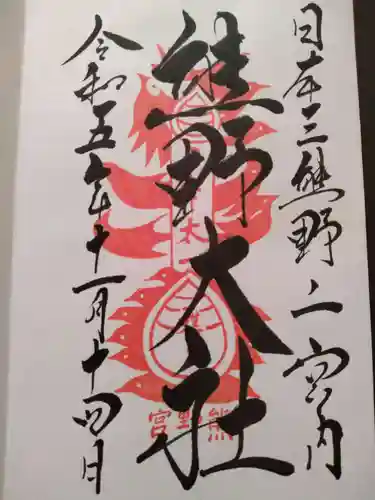 日本三熊野之宮内
熊野大社
令和五年十一月十四日
熊野宮